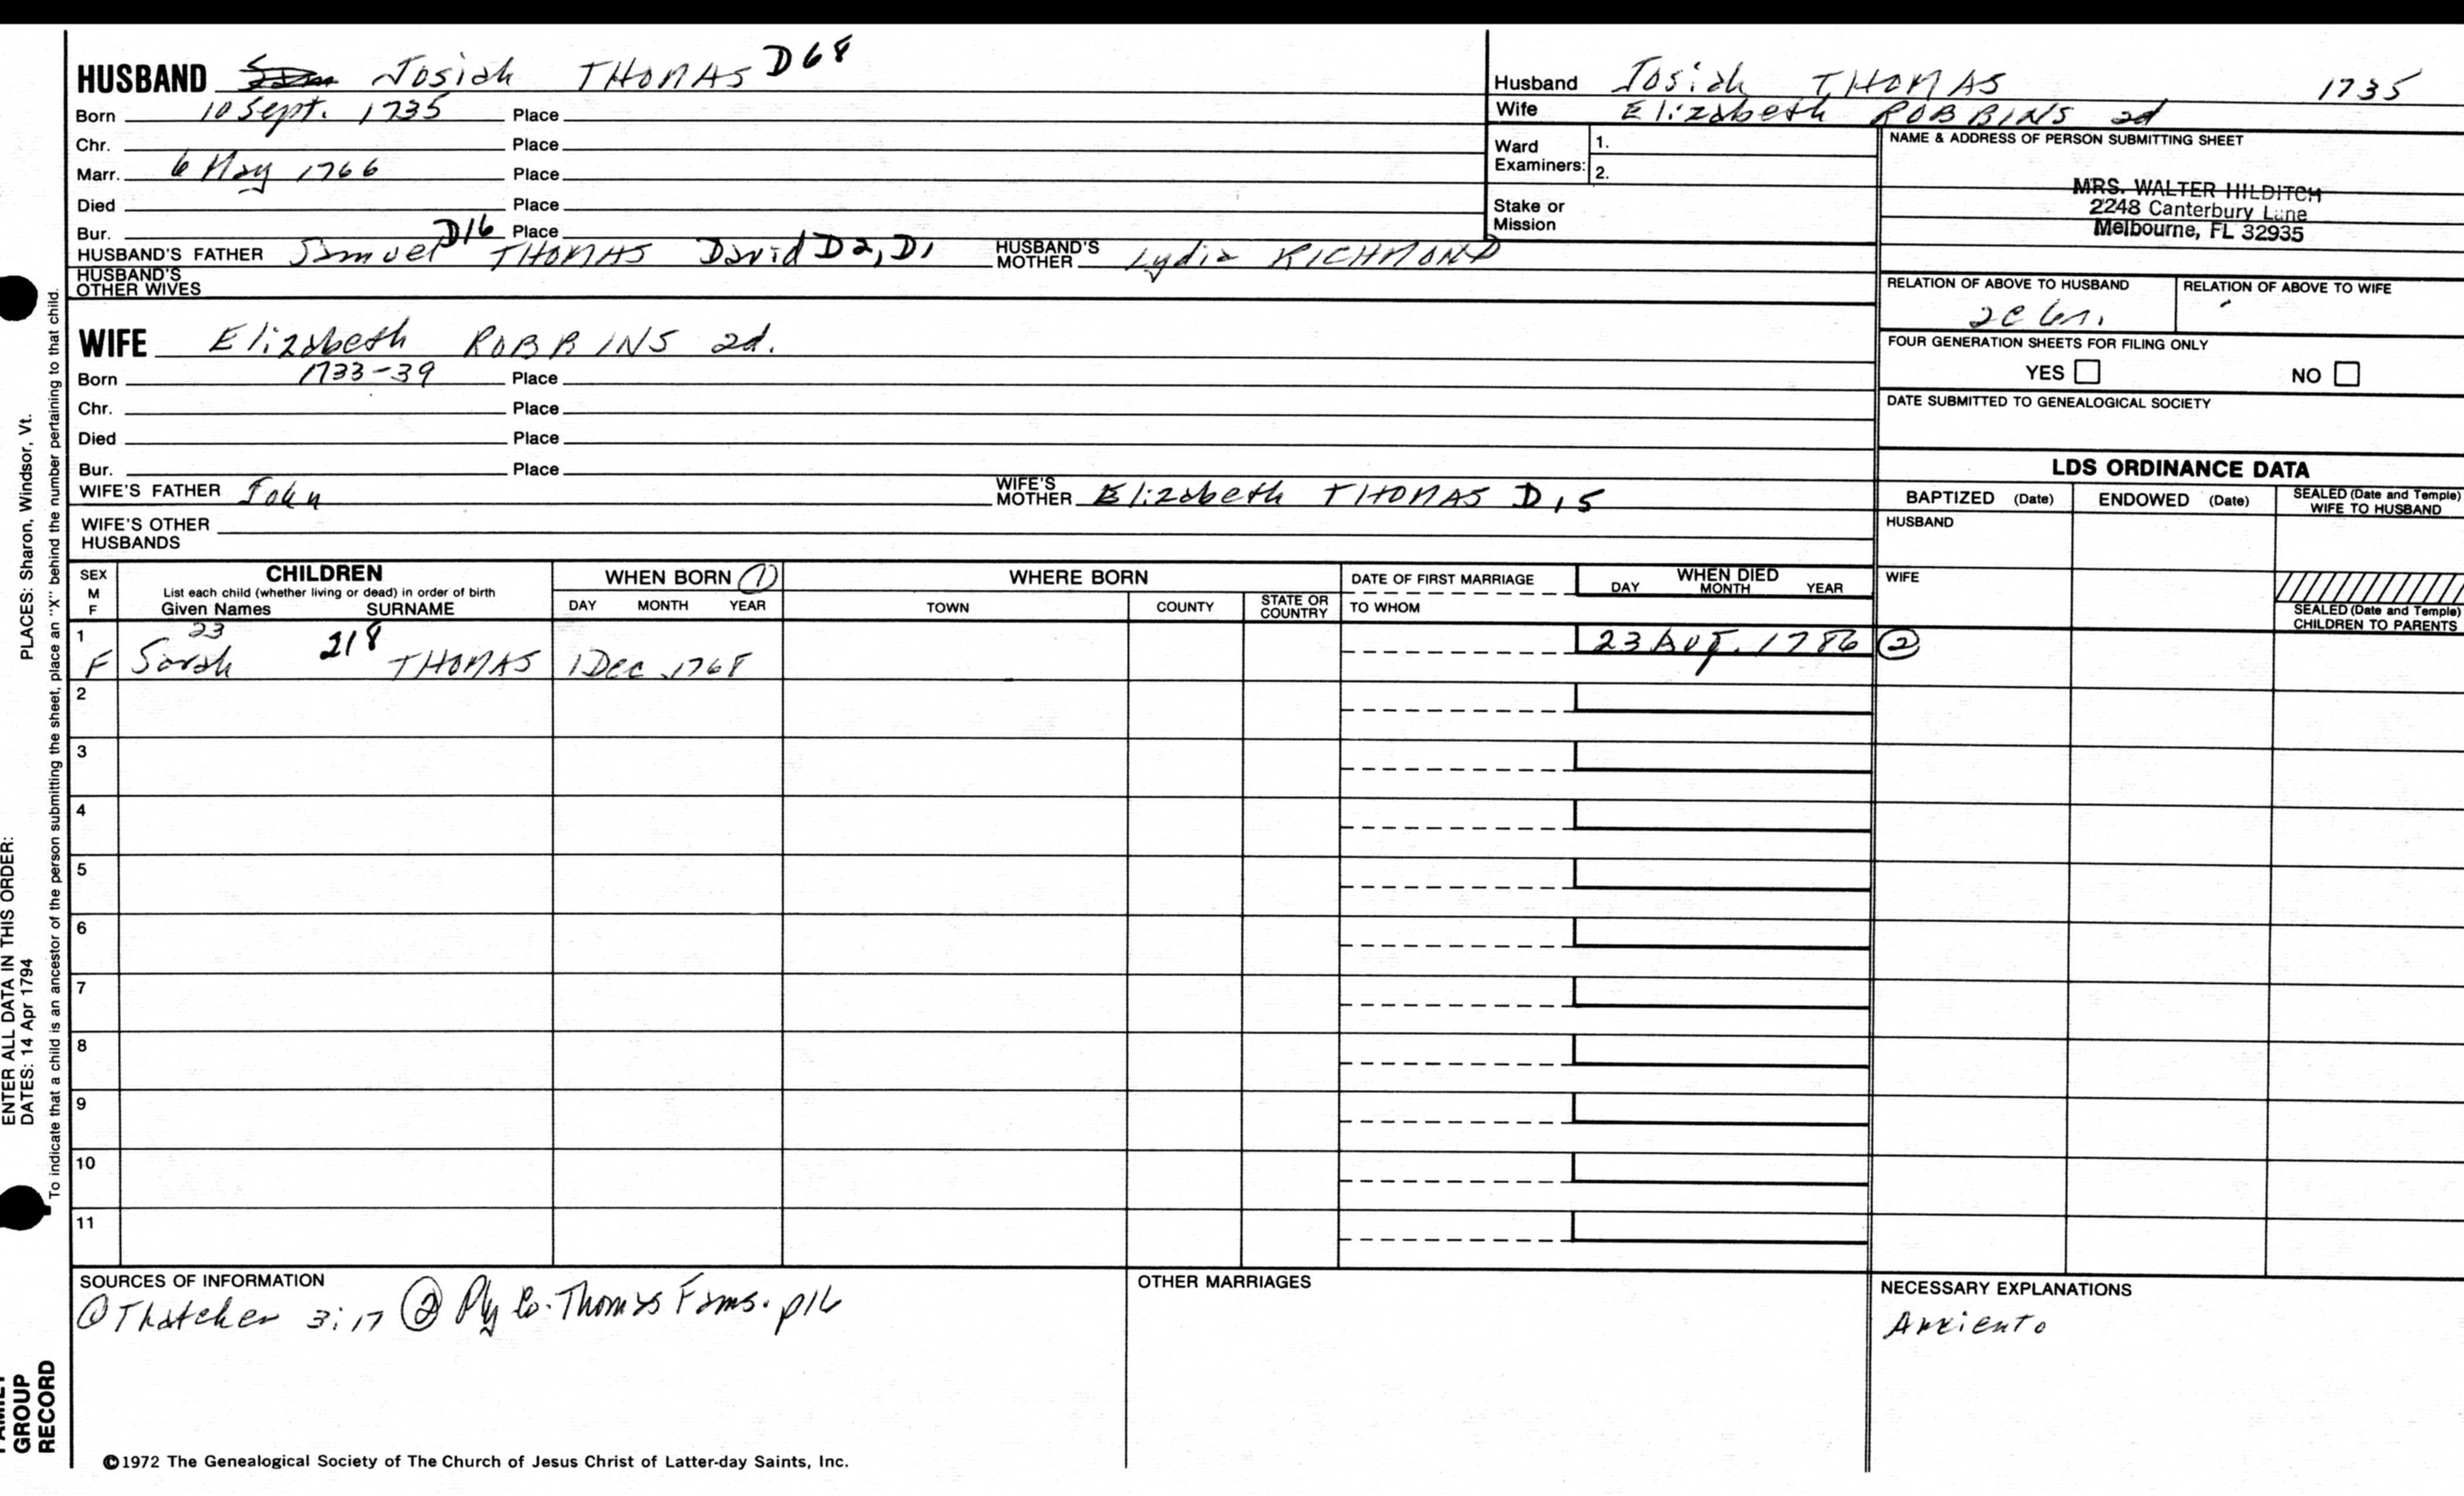 HUSBAND Josiah THOMAS D68
Born 10 Sept. 1735 Place
Chr. Place
Marr. 6 May 1766 Place
Died Place
Bur. Place
HUSBAND'S FATHER Samuel D16 THOMAS David D2, D1 HUSBAND'S MOTHER Lydia RICHMOND
HUSBAND'S OTHER WIVES
Husband Josiah THOMAS 1735
Wife Elizabeth ROBBINS 2d
Ward Examiners: 1.
2.
Stake or Mission
NAME & ADDRESS OF PERSON SUBMITTING SHEET
MRS. WALTER HILDITCH
2248 Canterbury Lane
Melbourne, FL 32935
RELATION OF ABOVE TO HUSBAND RELATION OF ABOVE TO WIFE
FOUR GENERATION SHEETS FOR FILING ONLY
YES NO
DATE SUBMITTED TO GENEALOGICAL SOCIETY
WIFE Elizabeth ROBBINS 2d.
Born 1733-39 Place
Chr. Place
Died Place
Bur. Place
WIFE'S FATHER John WIFE'S MOTHER Elizabeth THOMAS D15
WIFE'S OTHER HUSBANDS
LDS ORDINANCE DATA
BAPTIZED (Date) ENDOWED (Date) SEALED (Date and Temple) WIFE TO HUSBAND
HUSBAND
WIFE
SEALED (Date and Temple) CHILDREN TO PARENTS
SEX M F
CHILDREN
List each child (whether living or dead) in order of birth
Given Names SURNAME
WHEN BORN ①
DAY MONTH YEAR
WHERE BORN
TOWN COUNTY STATE OR COUNTRY
DATE OF FIRST MARRIAGE
TO WHOM
WHEN DIED
DAY MONTH YEAR
1 23 218 23 Aug. 1786 ②
F Sarah THOMAS 1 Dec 1768
2
3
4
5
6
7
8
9
10
11
SOURCES OF INFORMATION
① Thatcher 3:17 ② Ply Co. Thomas Fams. p16
OTHER MARRIAGES
NECESSARY EXPLANATIONS
©1972 The Genealogical Society of The Church of Jesus Christ of Latter-day Saints, Inc.
ENTER ALL DATA IN THIS ORDER:
DATES: 14 Apr 1794 PLACES: Sharon, Windsor, Vt.
To indicate that a child is an ancestor of the person submitting the sheet, place an "X" behind the number pertaining to that child.
GROUP
RECORD